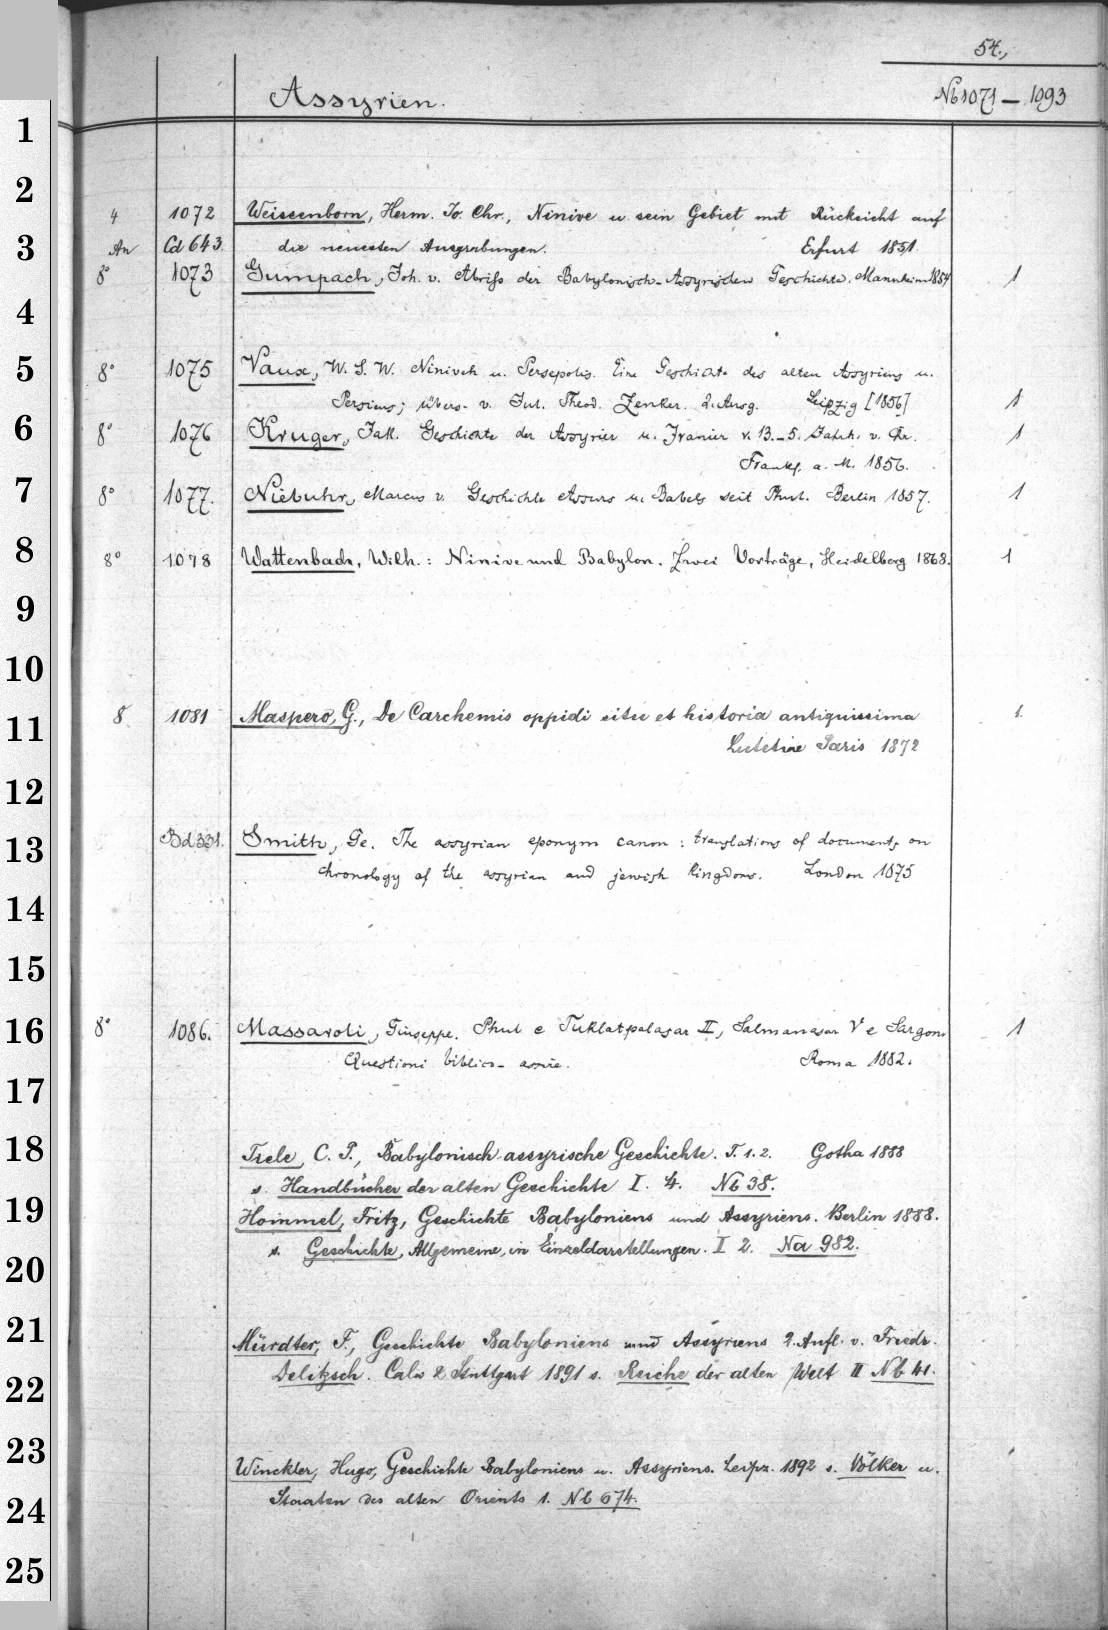 54.,
Assyrien.
Nb 1071 — 1093
1
2
4 1072 Weissenborn, Herm. Jo. Chr., Ninive u sein Gebiet mit Rücksicht auf
3 An Cd 643. die neuesten Ausgrabungen. Erfurt 1851.
8° 1073 Gumpach, Joh. v. Abriss der Babylonisch-Assyrischen Geschichte. Mannheim 1854 1
4
5 8° 1075 Vaux, W. S. W. Niniveh u. Persepolis. Eine Geschichte des alten Assyriens u.
Persiens; übers. v. Jul. Theod. Zenker. 2. Ausg. Leipzig [1856] 1
6 8° 1076 Kruger, Jak. Geschichte der Assyrier u. Iranier v. 13.–5. Jahrh. v. Chr. 1
Frankf. a. M. 1856.
7 8° 1077. Niebuhr, Marcus v. Geschichte Assurs u. Babels seit Phul. Berlin 1857. 1
8 8° 1078 Wattenbach, Wilh.: Ninive und Babylon. Zwei Vorträge, Heidelberg 1868. 1
9
10
11 8 1081 Maspero, G., De Carchemis oppidi situ et historia antiquissima 1.
Lutetiae Paris 1872
12
13 Bd 331. Smith, Ge. The assyrian eponym canon: translations of documents on
chronology of the assyrian and jewish kingdoms. London 1875
14
15
16 8° 1086. Massaroli, Giuseppe. Phul e Tuklatpalasar II, Salmanasar V e Sargon 1
Questioni biblico-assire. Roma 1882.
17
18 Tiele, C. P., Babylonisch-assyrische Geschichte. T. 1. 2. Gotha 1888
s. Handbücher der alten Geschichte I. 4. Nb 38.
19 Hommel, Fritz, Geschichte Babyloniens und Assyriens. Berlin 1888.
s. Geschichte, Allgemeine, in Einzeldarstellungen. I 2. Na 982.
20
21 Mürdter, F., Geschichte Babyloniens und Assyriens 2. Aufl. v. Friedr.
22 Delitzsch. Calw & Stuttgart 1891 s. Reiche der alten Welt II Nb 41.
23 Winckler, Hugo, Geschichte Babyloniens u. Assyriens. Leipz. 1892 s. Völker u.
24 Staaten des alten Orients 1. Nb 674.
25